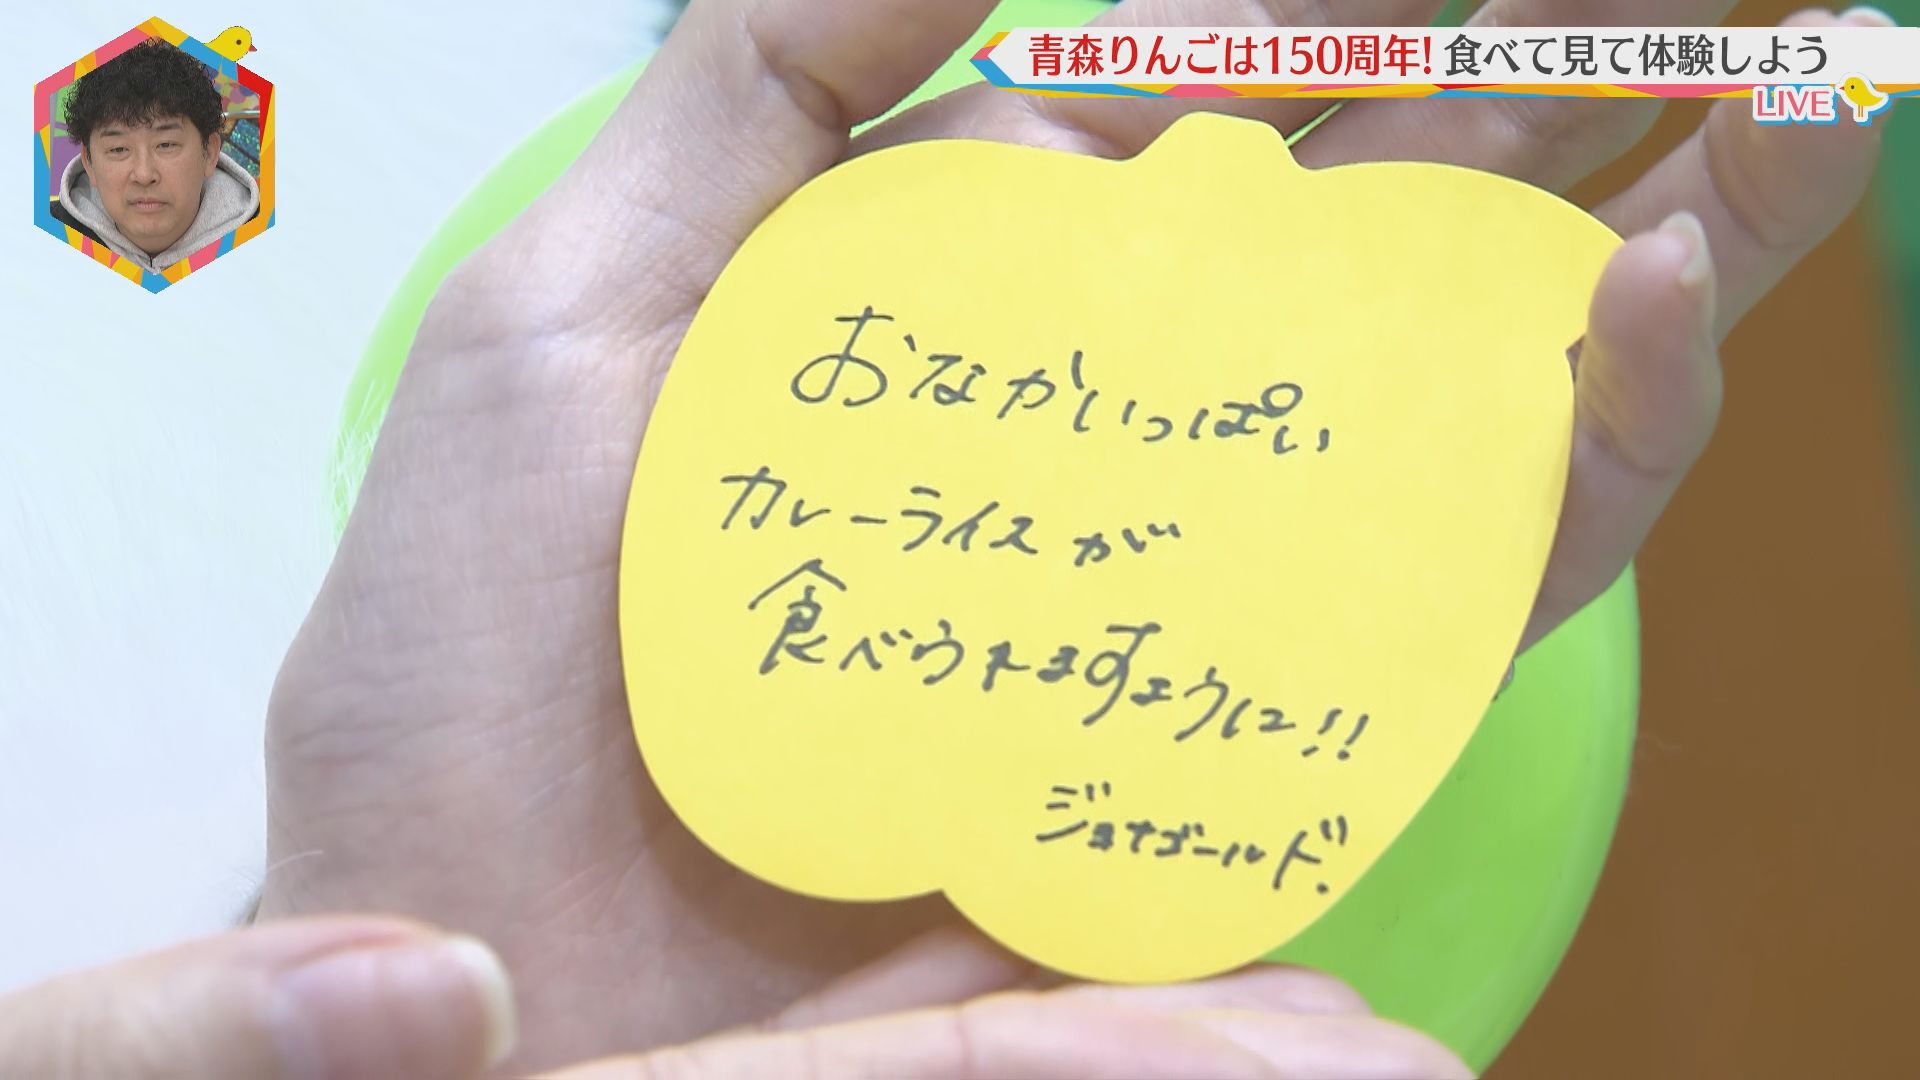 青森りんごは150周年!食べて見て体験しよう
LIVE
おなかいっぱい
カレーライスが
食べられますように!!
ジョナゴールド.